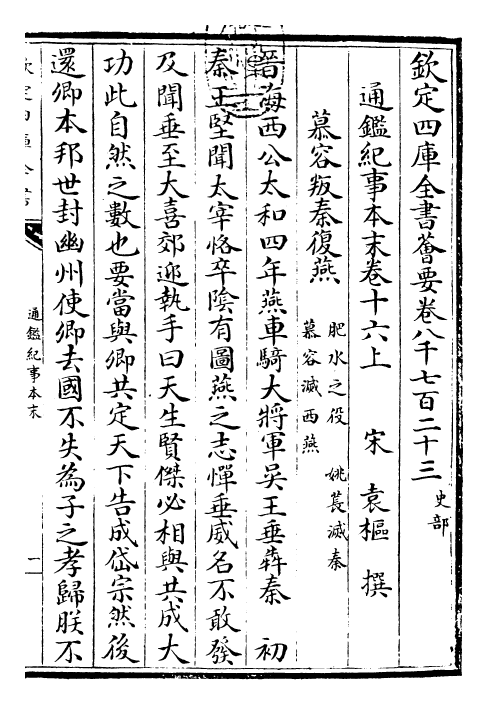 欽定四庫全書薈要卷八千七百二十三 史部
通鑑紀事本末卷十六上 宋 袁樞 撰
慕容叛秦復燕 肥水之役 姚萇滅秦
慕容滅西燕
晉海西公太和四年燕車騎大將軍吳王垂犇秦 初
秦王堅聞太宰恪卒陰有圖燕之志憚垂威名不敢發
及聞垂至大喜郊迎執手曰天生賢傑必相與共成大
功此自然之數也要當與卿共定天下告成岱宗然後
還卿本邦世封幽州使卿去國不失為子之孝歸朕不
欽定四庫全書
通鑑紀事本末
一